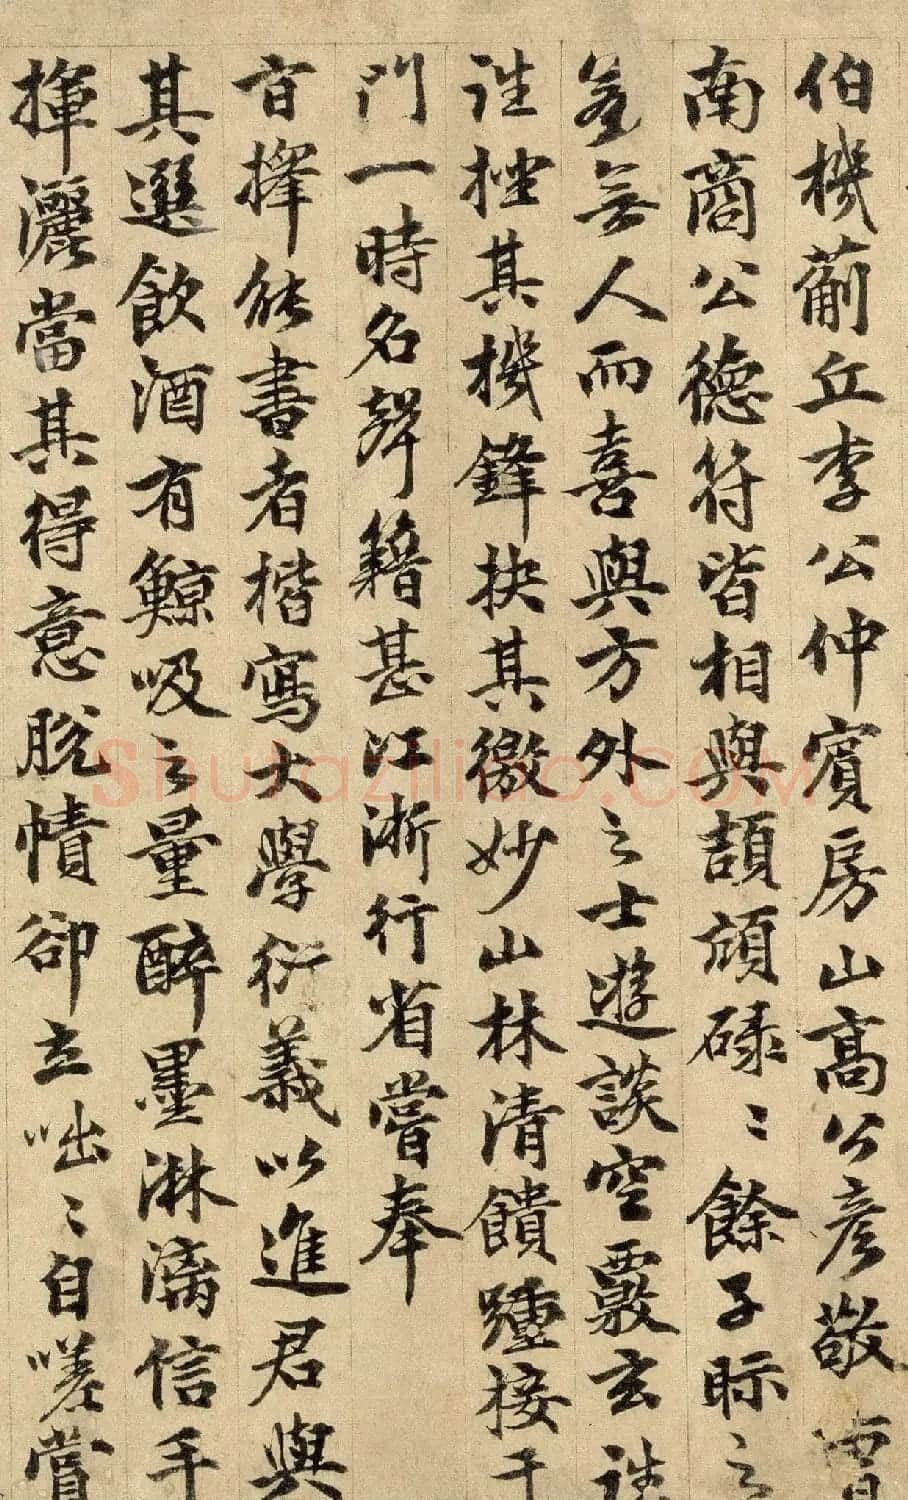 伯機薊丘李公仲賓房山高公彥敬曹
南商公德符皆相與頡頏碌〻餘子眎之
無人而喜與方外之士遊談空覈玄往
往挫其機鋒抉其徼妙山林清饋踵接于
門一時名聲籍甚江浙行省嘗奉
旨擇能書者楷寫大學衍義以進君與
其選飲酒有鯨吸之量醉墨淋漓信手
揮灑當其得意脫幘卻立咄〻自嗟賞
Shufaziliao.com